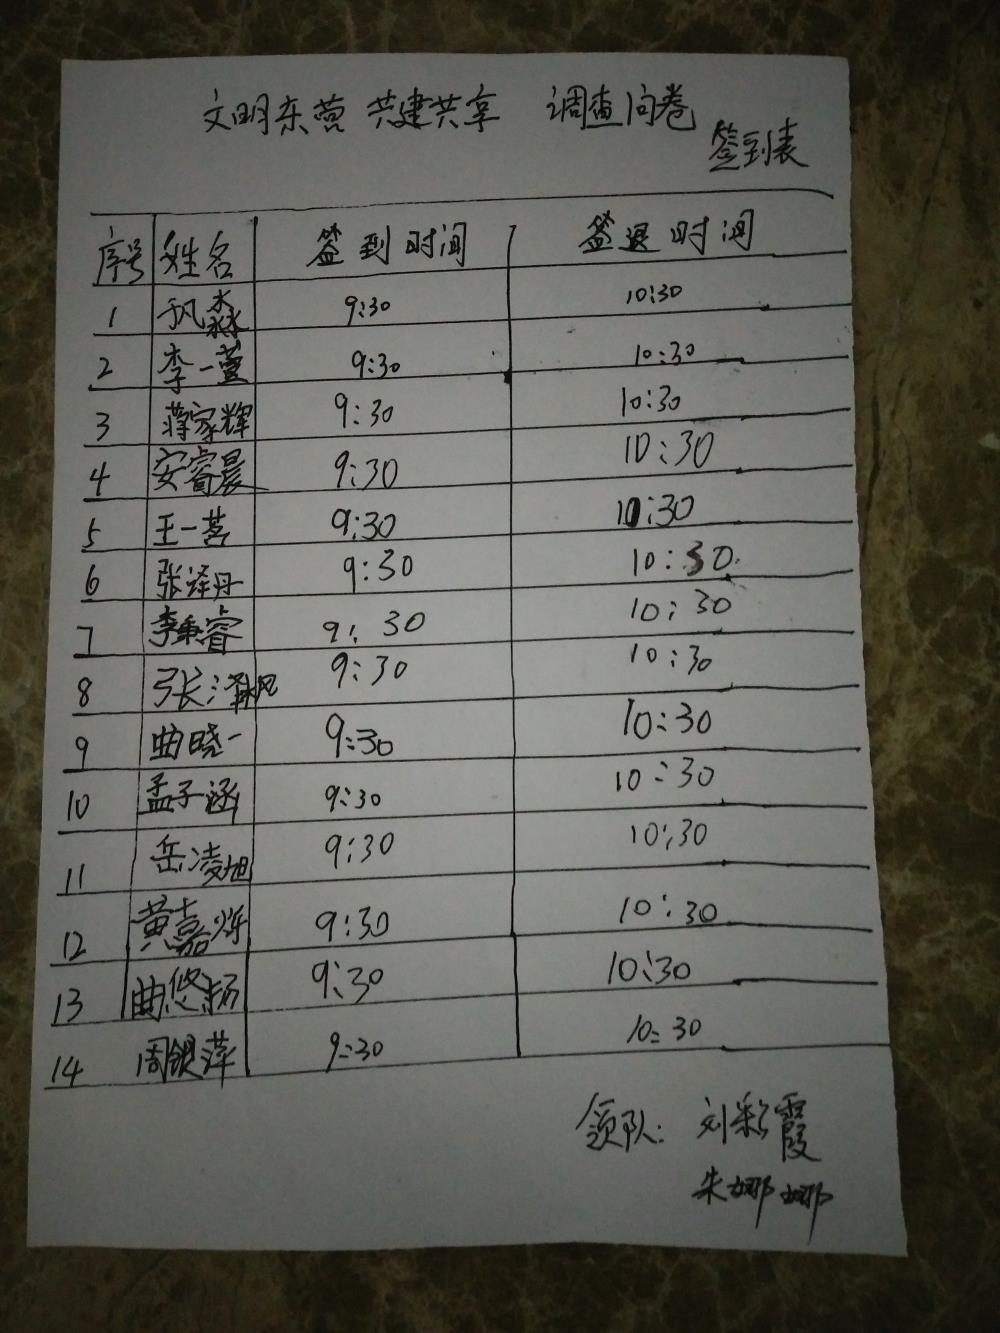 文明东营 共建共享 调查问卷
签到表
序号 姓名 签到时间 签退时间
1 9:30 10:30
2 李一萱 9:30 10:30
3 蒋家辉 9:30 10:30
4 安睿晨 9:30 10:30
5 王一茗 9:30 10:30
6 张泽丹 9:30 10:30
7 李秉睿 9:30 10:30
8 张泽 9:30 10:30
9 曲晓一 9:30 10:30
10 孟子涵 9:30 10:30
11 岳凌旭 9:30 10:30
12 黄嘉烨 9:30 10:30
13 曲悠扬 9:30 10:30
14 周银萍 9:30 10:30
领队: 刘彩霞
朱娜娜